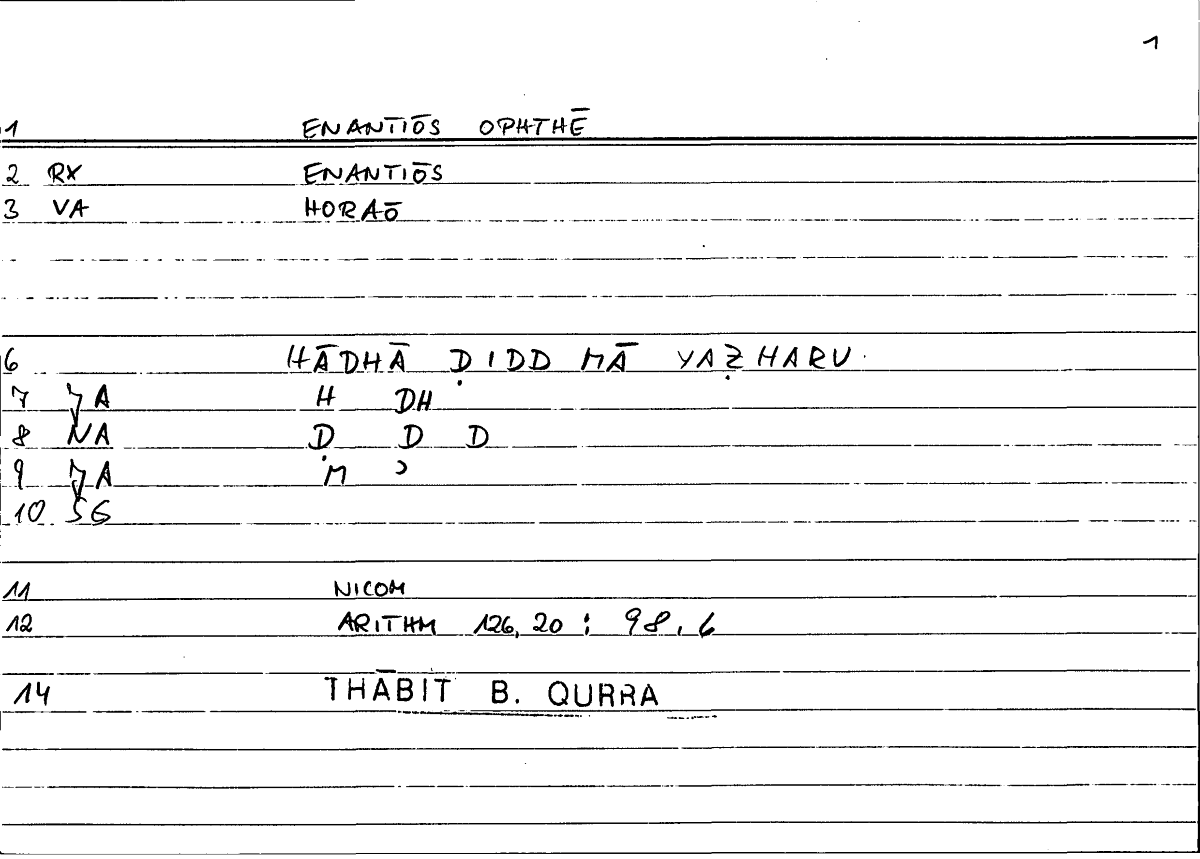 1
1 ENANTIŌS OPHTHĒ
2 RX ENANTIŌS
3 VA HORAŌ
6 HĀDHĀ ḌIDD MĀ YAẒHARU
7 JA H DH
8 NA Ḍ D D
9 JA M ʾ
10 SG
11 NICOM
12 ARITHM 126,20 : 98,6
14 THĀBIT B. QURRA